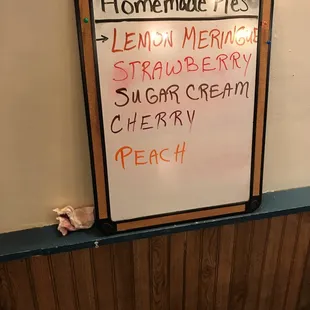 Homemade Pies
→ LEMON MERINGUE
STRAWBERRY
SUGAR CREAM
CHERRY
PEACH